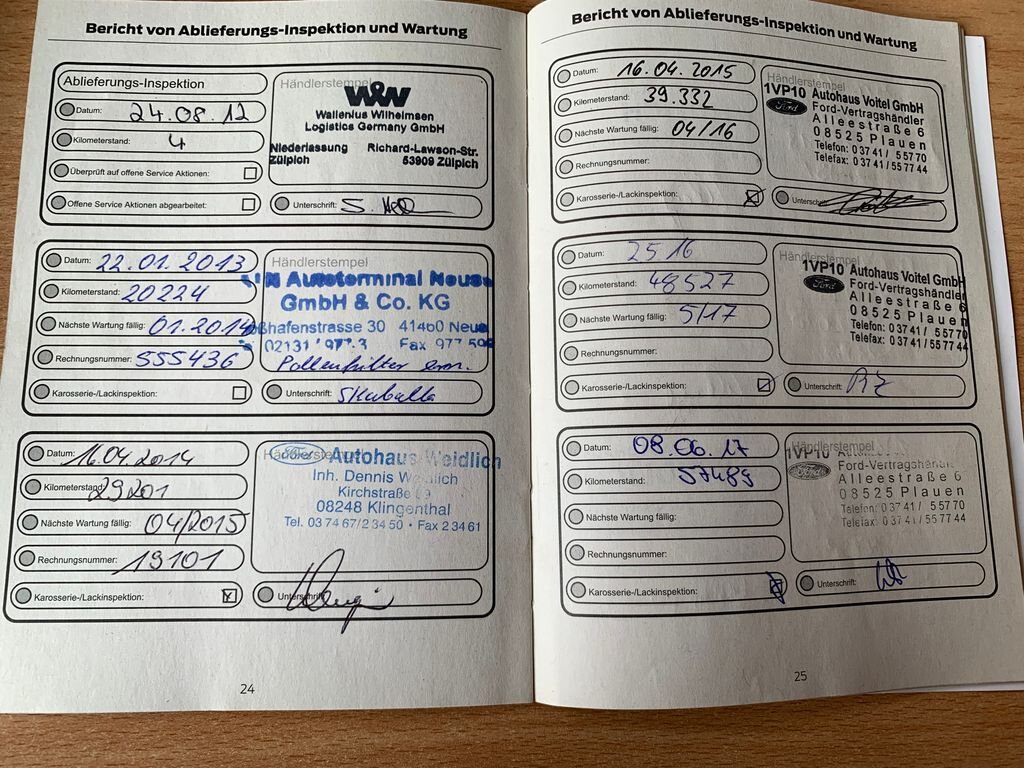 Bericht von Ablieferungs-Inspektion und Wartung
Ablieferungs-Inspektion
Datum: 24.08.12
Kilometerstand: 4
Überprüft auf offene Service Aktionen:
Offene Service Aktionen abgearbeitet:
Händlerstempel
W&W
Wallenius Wilhelmsen
Logistics Germany GmbH
Niederlassung Richard-Lawson-Str.
Zülpich 53909 Zülpich
Unterschrift:
Datum: 22.01.2013
Kilometerstand: 20224
Nächste Wartung fällig: 01.2014
Rechnungsnummer: 555436
Karosserie-/Lackinspektion:
Händlerstempel
Autoterminal Neuss
GmbH & Co. KG
30 41460 Neuss
02131 Fax
Pollenfilter ern.
Unterschrift: Skuballa
Datum: 16.04.2014
Kilometerstand: 29201
Nächste Wartung fällig: 04/2015
Rechnungsnummer: 19101
Karosserie-/Lackinspektion: x
Händlerstempel
Ford Autohaus Weidlich
Inh. Dennis Weidlich
Kirchstraße
08248 Klingenthal
Tel. 03 74 67/2 34 50 • Fax 2 34 61
Unterschrift:
24
Bericht von Ablieferungs-Inspektion und Wartung
Datum: 16.04.2015
Kilometerstand: 39.332
Nächste Wartung fällig: 04/16
Rechnungsnummer:
Karosserie-/Lackinspektion: x
Händlerstempel
1VP10 Autohaus Voitel GmbH
Ford Ford-Vertragshändler
Alleestraße 6
08525 Plauen
Telefon: 0 37 41 / 5 57 70
Telefax: 0 37 41 / 55 77 44
Unterschrift:
Datum: 25 16
Kilometerstand: 48527
Nächste Wartung fällig: 5/17
Rechnungsnummer:
Karosserie-/Lackinspektion:
Händlerstempel
1VP10 Autohaus Voitel GmbH
Ford Ford-Vertragshändler
Alleestraße 6
08525 Plauen
Telefon: 0 37 41 / 5 57 70
Telefax: 0 37 41 / 55 77 44
Unterschrift:
Datum: 08.06.17
Kilometerstand: 57489
Nächste Wartung fällig:
Rechnungsnummer:
Karosserie-/Lackinspektion:
Händlerstempel
1VP10
Ford Ford-Vertragshändler
Alleestraße 6
08525 Plauen
Telefon: 0 37 41 / 5 57 70
Telefax: 0 37 41 / 55 77 44
Unterschrift:
25